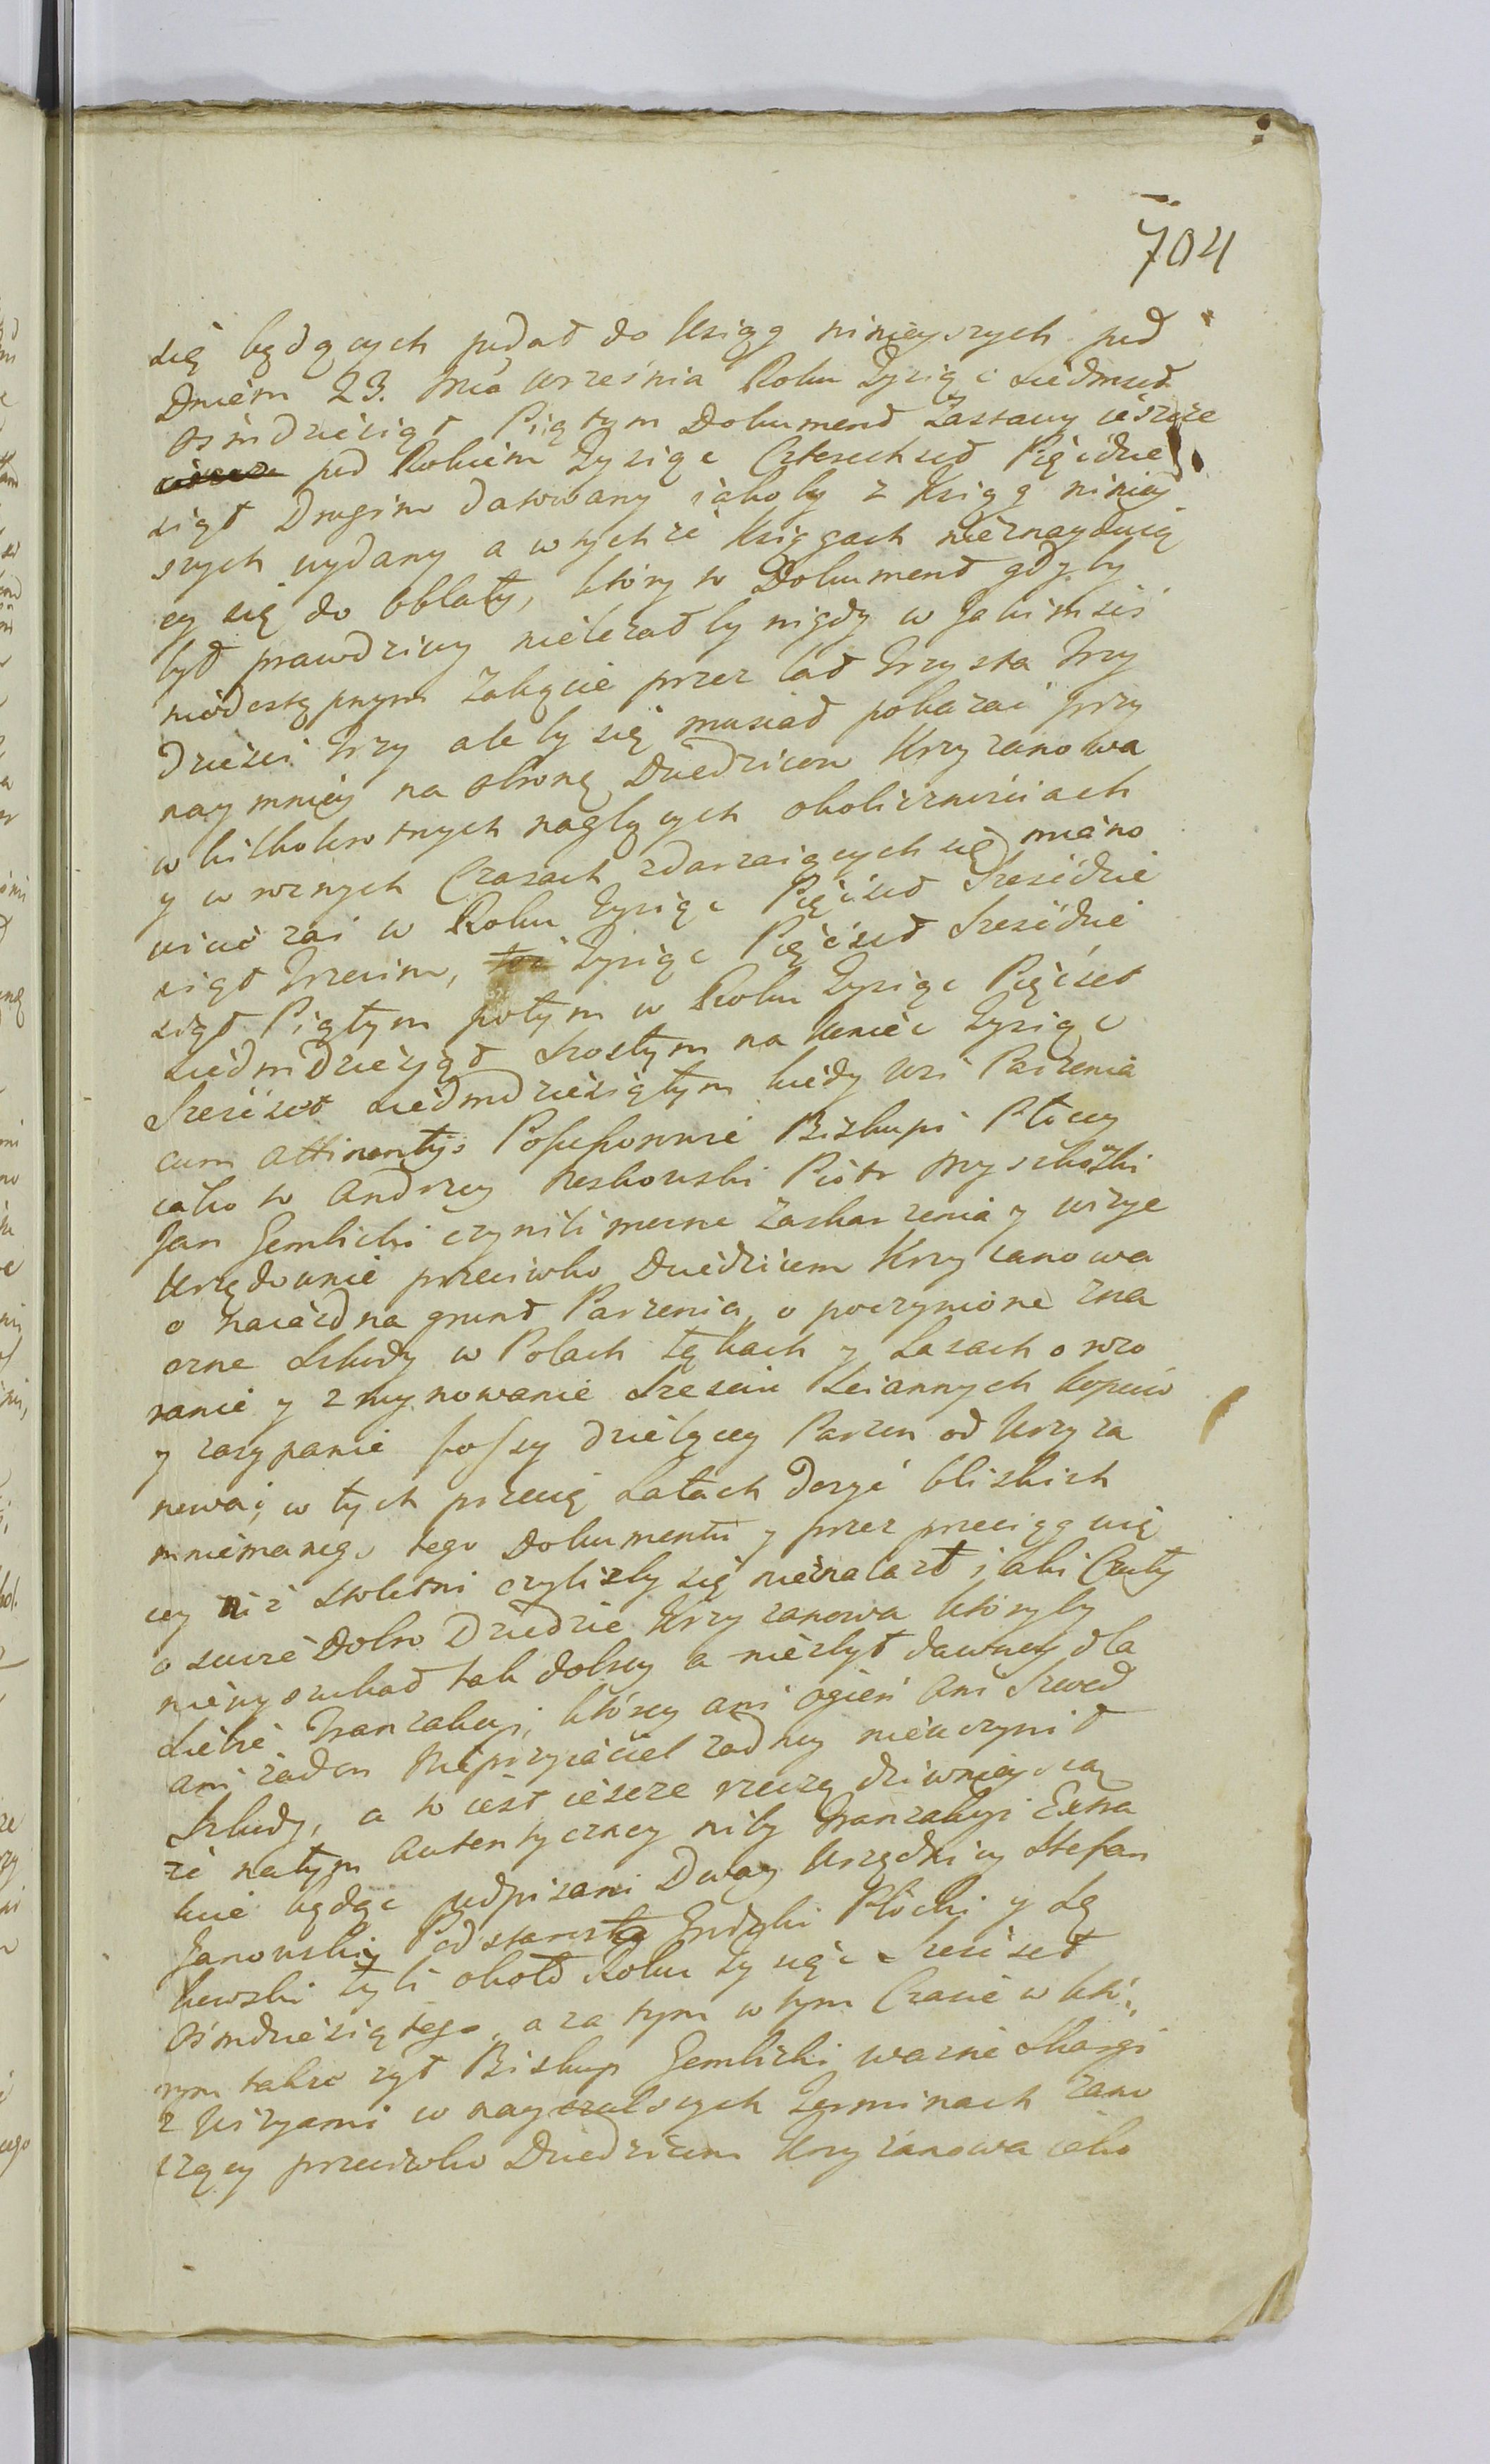 704
się będących podał do Ksiąg ninieyszych pod
Dniem 23. Mca Września Roku Tysiąc Siedmset
Osimdziesiąt Piątym Dokument Zastawy ieszcze
pod Rokiem Tysiąc Czterechset Pięcdzie
siąt Drugim datowany iakoby z Ksiąg niniey
szych wydany a w tychże Księgach nieznayduią
cy się do Oblaty, który to Dokument gdyby
był prawdziwy nieleżał by nigdy w Jakimsiś
niedostępnym Zakącie przez lat Trzysta Trzy
dzieści Trzy ale by się musiał pokazać przy
naymniey na obronę Dziedzicow Krzyżanowa
w kilkokrotnych naglących okolicznościach
y w roznych Czasach zdarzaiących się miano
wicie zaś w Roku Tysiąc Pięćset Sześćdzie
siąt Trzecim, Tysiąc Pięćset Sześćdzie
siąt Piątym potym w Roku Tysiąc Pięćset
Siedmdziesiąt Szostym na koniec Tysiąc
Sześćset Siedmdziesiątym kiedy Wsi Parzenia
cum attinentijs Possessorowie Biskupi Płoccy
iako to Andrzey Noskowski Piotr Myszkoski
Jan Gembicki czynili mocne Zaskarzenia y wizye
Urzędownie przeciwko Dziedzicom Krzyżanowa
o naiazd na grunt Parzenia, o poczynione zna
czne Szkody w Polach Łąkach y Lasach o rozo
ranie y zruynowanie Sześciu Ściannych kopców
y zasypanie fossy dzielącey Parzen od Krzyża
nowa; w tych przecię Latach dosyć bliskich
mniemanego tego Dokumentu y przez przeciąg wię
cey niż stoletni czyliżby się nieznalazł iaki Czuły
o swoie Dobro Dziedzic Krzyżanowa któryby
niewyszukał tak dobrey a niezbyt dawney dla
Siebie Tranzakcyi, którey ani ogień ani Szwed
ani żaden Nieprzyiaciel żadney nieuczynił
Szkody, a to iest ieszcze rzeczą dziwnieyszą
że natym Autentyczney niby Tranzakcyi Extra
kcie będąc podpisani Dway Urzędnicy Stefan
Janowski Podstarosta Grodzki Płocki y Łę
kowski żyli około Roku Tysiąc Sześćset
Osmdziesiątego, a za tym w tym Czasie w któ
rym także żył Biskup Gembicki ważne Skargi
z Wizyami w nayczulszych Terminach zano
szący przeciwko Dziedzicom Krzyżanowa iako